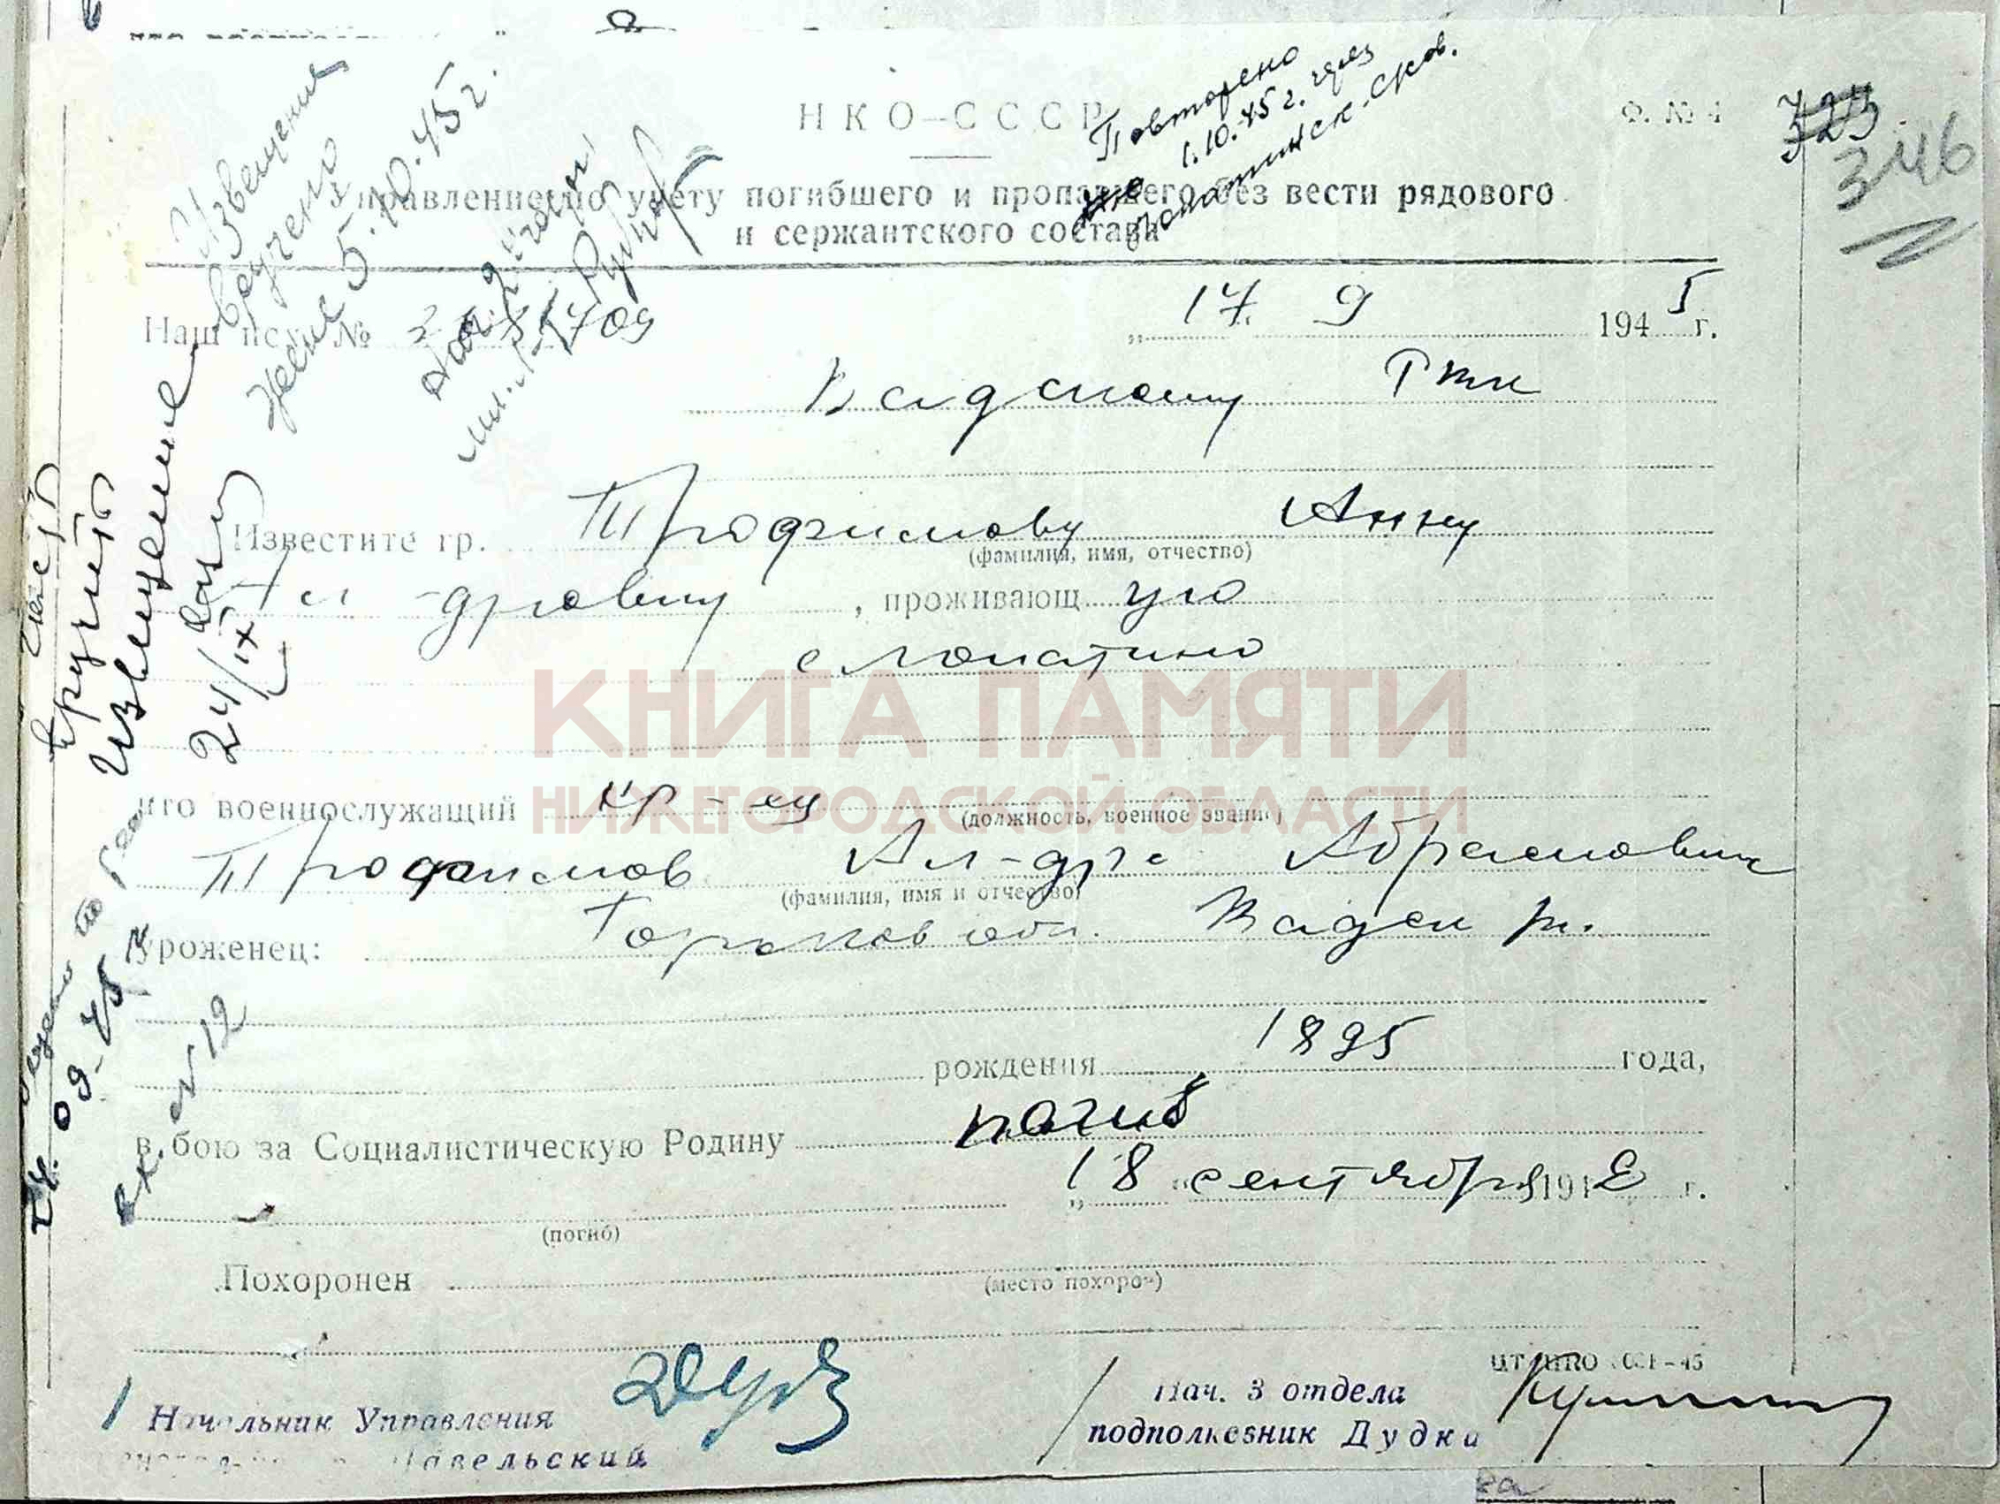 НКО–СССР
Ф. № 4
723
346
Повторено
1.10.45 г. через
Лопатинск. сов.
Управление по учету погибшего и пропавшего без вести рядового
и сержантского состава
Извещения
вручено
жене 5.10.45 г.
Наш исх. №
„ 17. 9 1945 г.
Вадскому РВК
Известите гр. Трофимову Анну
(фамилия, имя, отчество)
Ал-дровну, проживающ ую
с Лопатино
вручить
извещение
24/IX
КНИГА ПАМЯТИ
НИЖЕГОРОДСКОЙ ОБЛАСТИ
что военнослужащий кр-ец
(должность, военное звание)
Трофимов Ал-др Абрамович
(фамилия, имя и отчество)
уроженец: Горьков обл. Вадск р.
рождения 1895 года,
в бою за Социалистическую Родину погиб
„ 18 " сентября 1942 г.
(погиб)
Похоронен
(место похорон)
09-45
вх. №12
Начальник Управления
Павельский
Нач. 3 отдела
подполковник Дудка